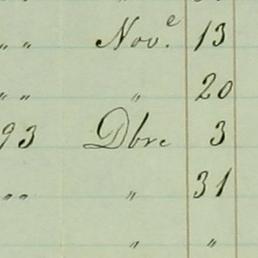 „ „ Nov.e 13
„ „ „ 20
93 Dbre 3
„ „ „ 31
„ „